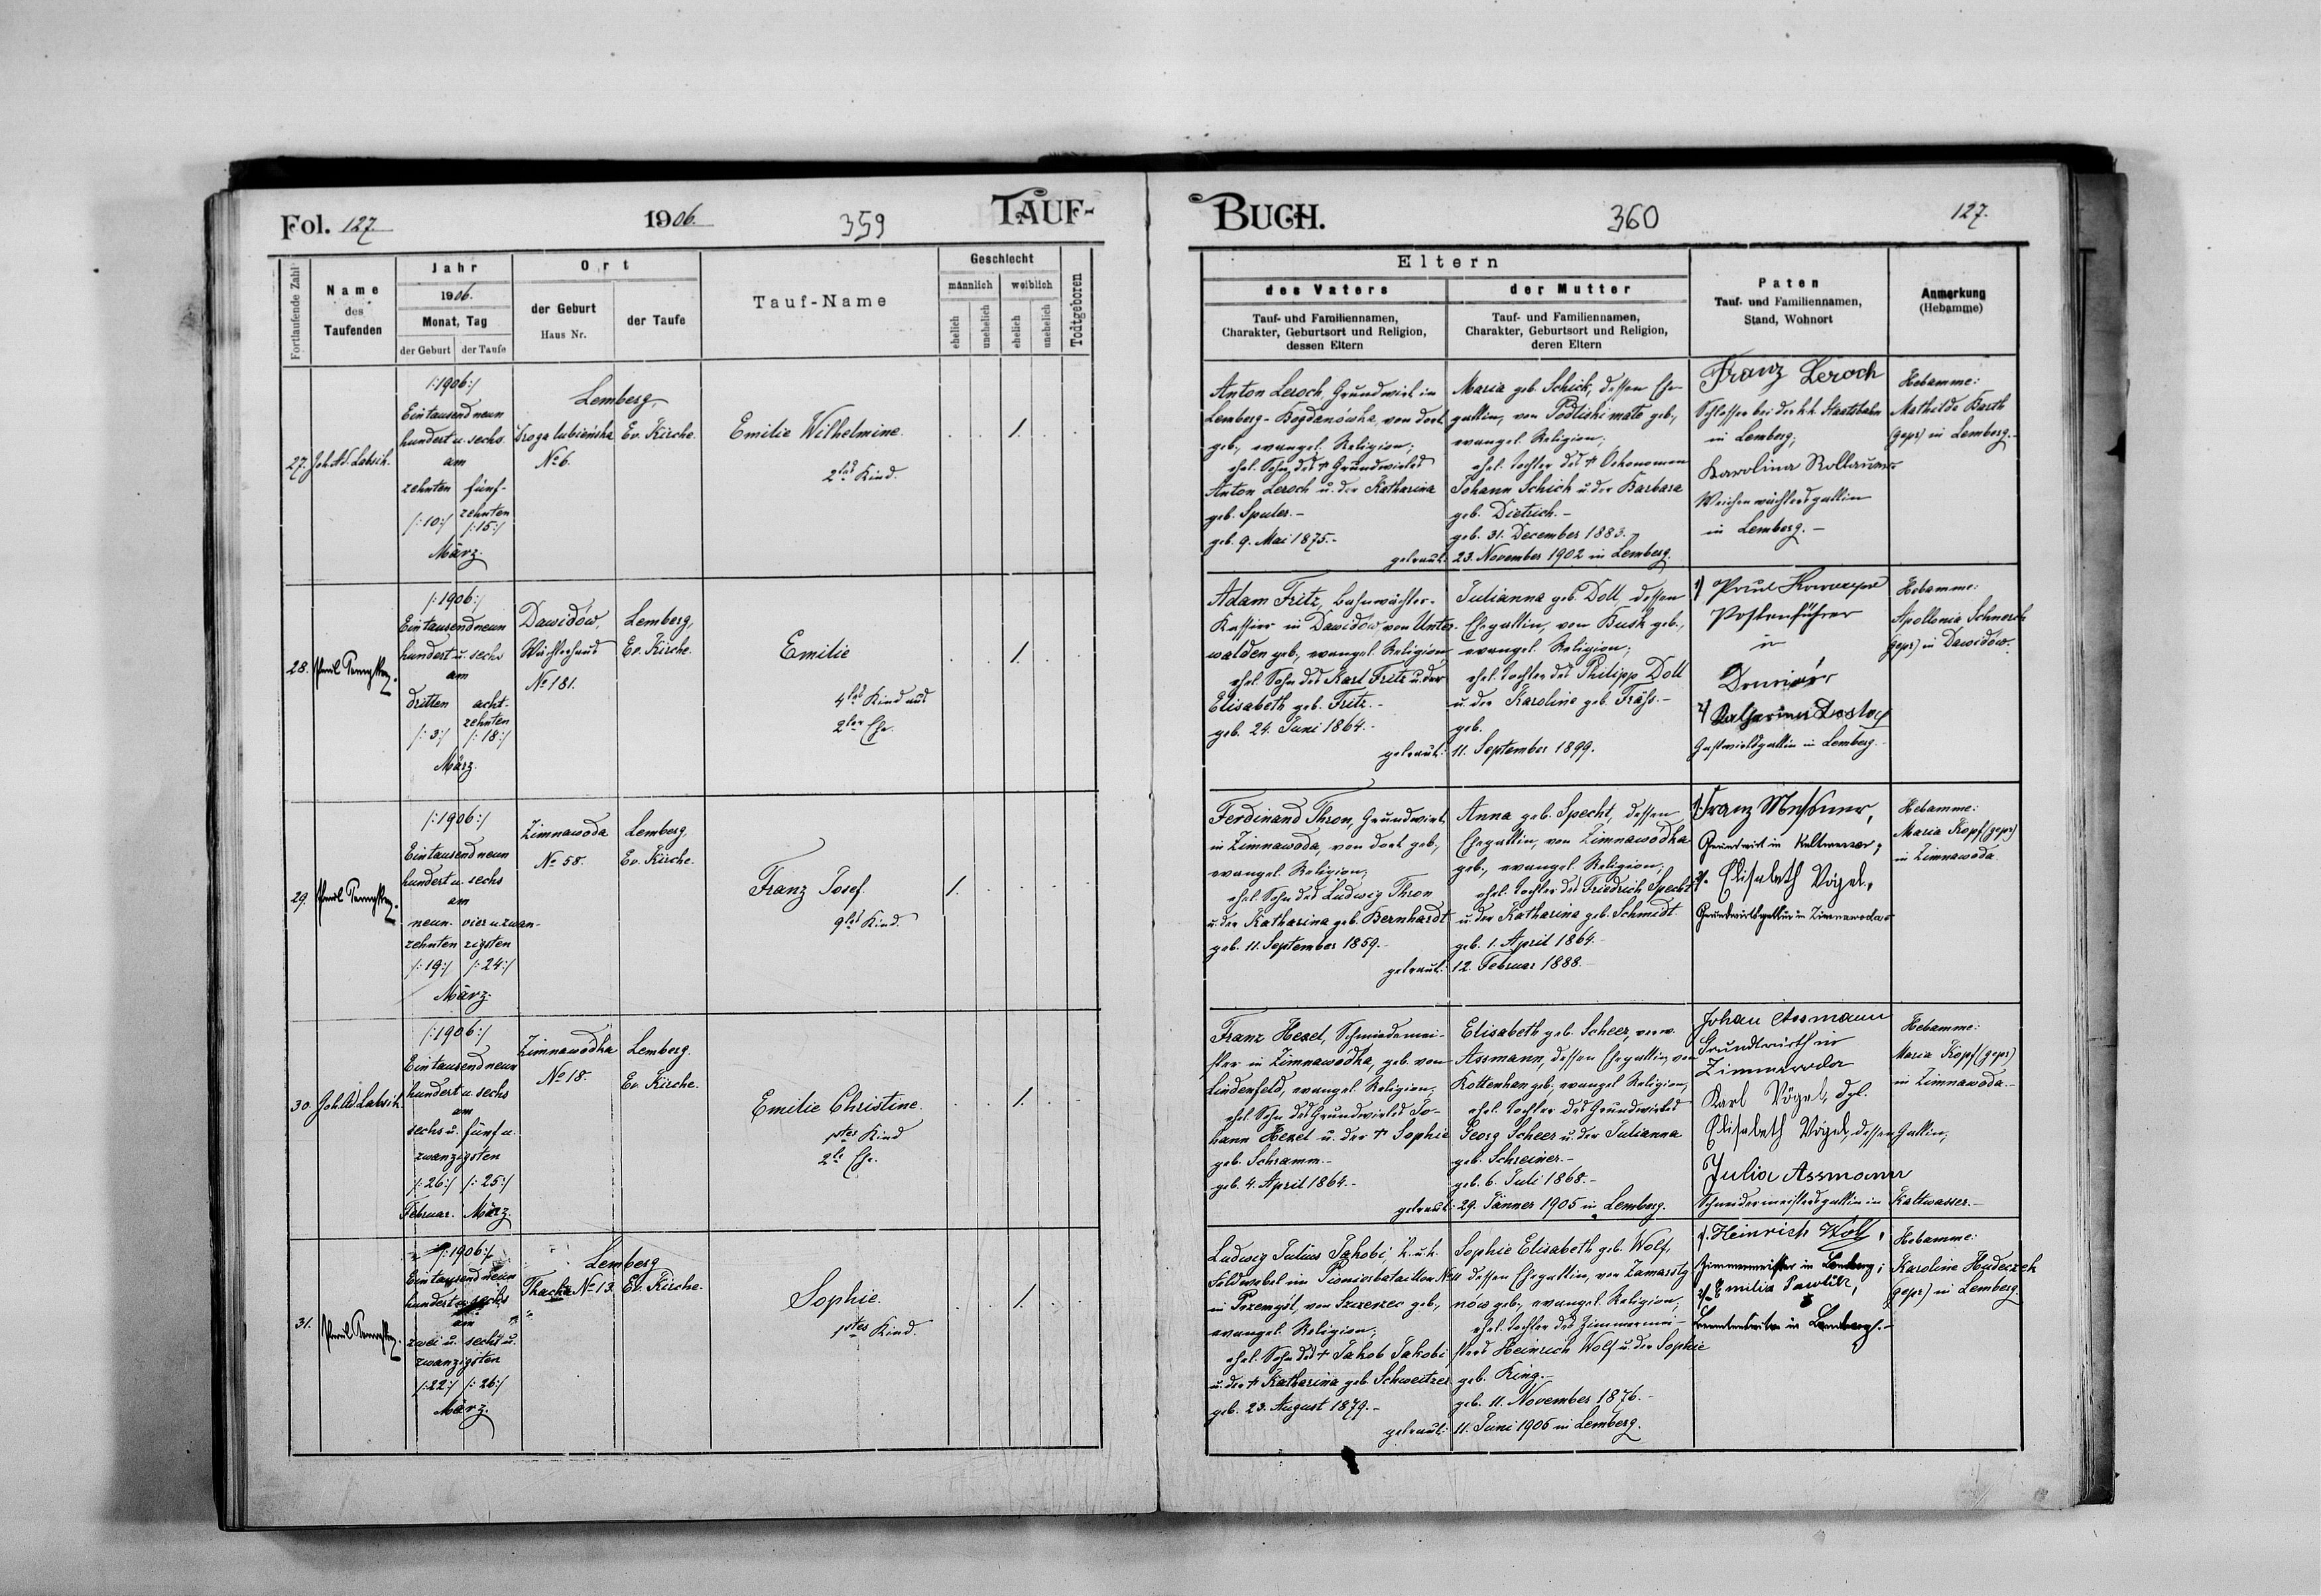 Fol. 127
1906.
359
TAUF-
Fortlaufende Zahl
Name
des
Taufenden
Jahr
1906.
Monat, Tag
der Geburt
der Taufe
Ort
der Geburt
Haus Nr.
der Taufe
Tauf-Name
Geschlecht
männlich
weiblich
ehelich
unehelich
ehelich
unehelich
Todtgeboren
27.
/:1906:/
Eintausendneun
hundert u. sechs
am
zehnten
/:10:/
fünf-
zehnten
/:15:/
März.
Lemberg,
Droga lubieńska
No 6.
Ev. Kirche.
Emilie Wilhelmine.
2tes Kind.
1.
28.
/:1906:/
Eintausendneun
hundert u. sechs
am
dritten
/:3:/
acht-
zehnten
/:18:/
März.
Dawidów,
Wächterhaus
No 181.
Lemberg,
Ev. Kirche.
Emilie
4tes Kind aus
2ter Ehe.
1.
29.
/:1906:/
Eintausendneun
hundert u. sechs
am
neun-
zehnten
/:19:/
vier u. zwan-
zigsten
/:24:/
März.
Zimnawoda
No 58.
Lemberg,
Ev. Kirche.
Franz Josef.
9tes Kind.
1.
30.
/:1906:/
Eintausendneun
hundert u. sechs
am
sechs u. fünf u.
zwanzigsten
/:26:/ /:25:/
Februar. März
Zimnawodka
No 18.
Lemberg.
Ev. Kirche.
Emilie Christine.
1stes Kind
2te Ehe.
1.
31.
/:1906:/
Eintausendneun
hundert u. sechs
am
zwei u. sechs u.
zwanzigsten
/:22:/ /:26:/
März.
Lemberg
No 13.
Ev. Kirche.
Sophie.
1stes Kind.
1.
BUCH.
360
127.
Eltern
des Vaters
Tauf- und Familiennamen,
Charakter, Geburtsort und Religion,
dessen Eltern
der Mutter
Tauf- und Familiennamen,
Charakter, Geburtsort und Religion,
deren Eltern
Paten
Tauf- und Familiennamen,
Stand, Wohnort
Anmerkung
(Hebamme)
Anton Leroch, Grundwirt in
Lemberg-Bogdanówka, von dort
geb., evangel. Religion;
ehel. Sohn des † Grundwirtes
Anton Leroch u. der Katharina
geb. Spuler.-
geb. 9. Mai 1875.-
Maria geb. Schick, dessen Ehe-
gattin, von geb.,
evangel. Religion;
ehel. Tochter des † Oekonomen
Johann Schick u. der Barbara
geb. Dietrich.-
geb. 31. December 1883.
getraut: 23. November 1902 in Lemberg.
Franz Leroch
Schlosser bei der k.k. Staatsbahn
in Lemberg;
Karolina
Weichenwächtersgattin
in Lemberg.-
Hebamme:
Mathilde Barth
(gepr) in Lemberg.-
Adam Fritz, Bahnwächter-
Kassier in Dawidów, von Unter-
walden geb., evangel. Religion,
ehel. Sohn des Karl Fritz u. der
Elisabeth geb. Fritz.-
geb. 24. Juni 1864.-
Julianna geb. Doll, dessen
Ehegattin, von Busk geb.,
evangel. Religion;
ehel. Tochter des Philipp Doll
u. der Karoline geb.
geb.
getraut: 11. September 1899.
1)
Postenführer
in
2) Katharina
Gastwirtsgattin in Lemberg.
Hebamme:
Apollonia
(gepr) in Dawidów.
Ferdinand Thron, Grundwirt
in Zimnawoda, von dort geb.,
evangel. Religion;
ehel. Sohn des Ludwig Thron
u. der Katharina geb. Bernhardt
geb. 11. September 1859.-
Anna geb. Specht, dessen
Ehegattin, von Zimnawodka
geb., evangel. Religion;
ehel. Tochter des Friedrich Specht
u. der Katharina geb. Schmidt.
geb. 1. April 1864.
getraut: 12. Februar 1888.-
1. Franz
Grundwirt in Kaltwasser;
2. Elisabeth Vogel,
Grundwirtsgattin in Zimnawoda.
Hebamme:
Maria Kopf (gepr)
in Zimnawoda.
Franz Hexel, Schmiedemei-
ster in Zimnawodka, geb. von
Lindenfeld, evangel. Religion;
ehel. Sohn des Grundwirtes Jo-
hann Hexel u. der † Sophie
geb. Schramm.-
geb. 4. April 1864.-
Elisabeth geb. Scheer, verw.
Assmann, dessen Ehegattin, von
Kottenhan geb., evangel. Religion,
ehel. Tochter des Grundwirtes
Georg Scheer u. der Julianna
geb. Schreiner.-
geb. 6. Juli 1868.-
getraut: 29. Jänner 1905 in Lemberg.
Johan Assmann
Grundwirth in
Zimnawoda
Karl Vögel, dgl.
Elisabeth Vögel, dessen Gattin;
Julia Assmann
Schneidermeistersgattin in Kaltwasser.-
Hebamme:
Maria Kopf (gepr)
in Zimnawoda.-
Ludwig Julius Jakobi, k.u.k.
Feldwebel im Pionierbataillon No 11
in Przemyśl, von Szczerzec geb.,
evangel. Religion;
ehel. Sohn des † Jakob Jakobi
u. der † Katharina geb. Schweitzer
geb. 23. August 1879.-
Sophie Elisabeth geb. Wolf,
dessen Ehegattin, von Zamarsty-
nów geb., evangel. Religion;
ehel. Tochter des Zimmermei-
sters Heinrich Wolf u. der Sophie
geb. King.-
geb. 11. November 1876.-
getraut: 11. Juni 1905 in Lemberg.
1. Heinrich Wolf,
Zimmermeister in Lemberg;
2. Emilia
in Lemberg.-
Hebamme:
Karoline Hudeczek
(gepr) in Lemberg.